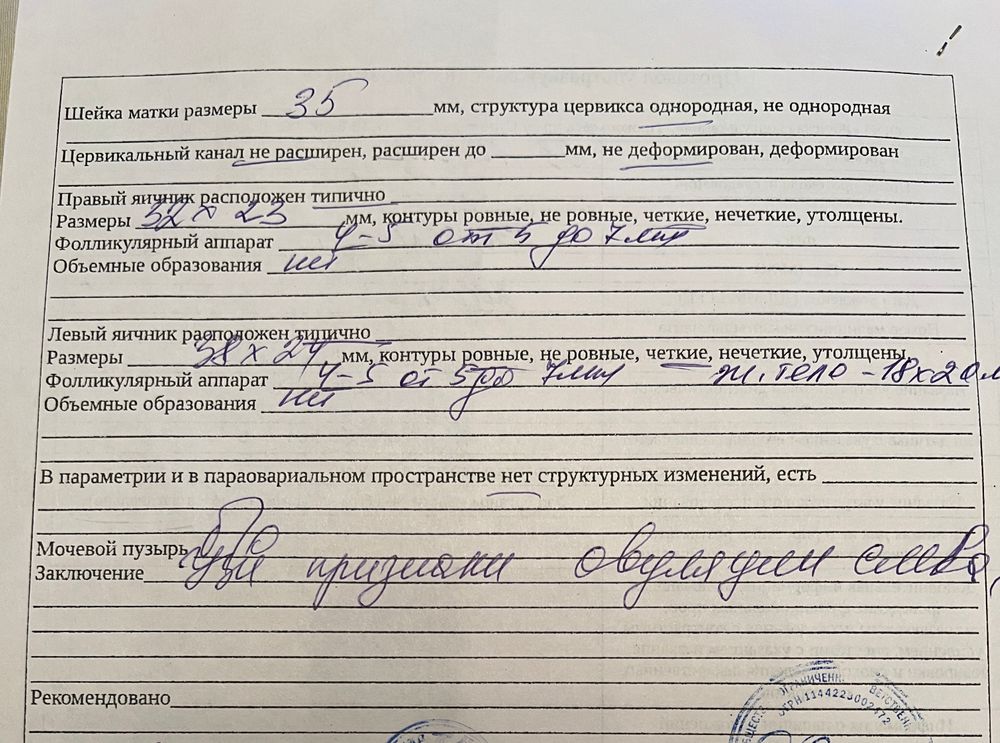 Шейка матки размеры 35 мм, структура цервикса однородная, не однородная
Цервикальный канал не расширен, расширен до ______ мм, не деформирован, деформирован
Правый яичник расположен типично
Размеры 32 х 23 мм, контуры ровные, не ровные, четкие, нечеткие, утолщены.
Фолликулярный аппарат 4-5 от 5 до 7 мм
Объемные образования нет
Левый яичник расположен типично
Размеры 38 х 24 мм, контуры ровные, не ровные, четкие, нечеткие, утолщены.
Фолликулярный аппарат 4-5 от 5 до 7 мм ж. тело - 18х20 м
Объемные образования нет
В параметрии и в параовариальном пространстве нет структурных изменений, есть
Мочевой пузырь
Заключение УЗИ признаки овуляции слева
Рекомендовано
ОГРН 1144223002472